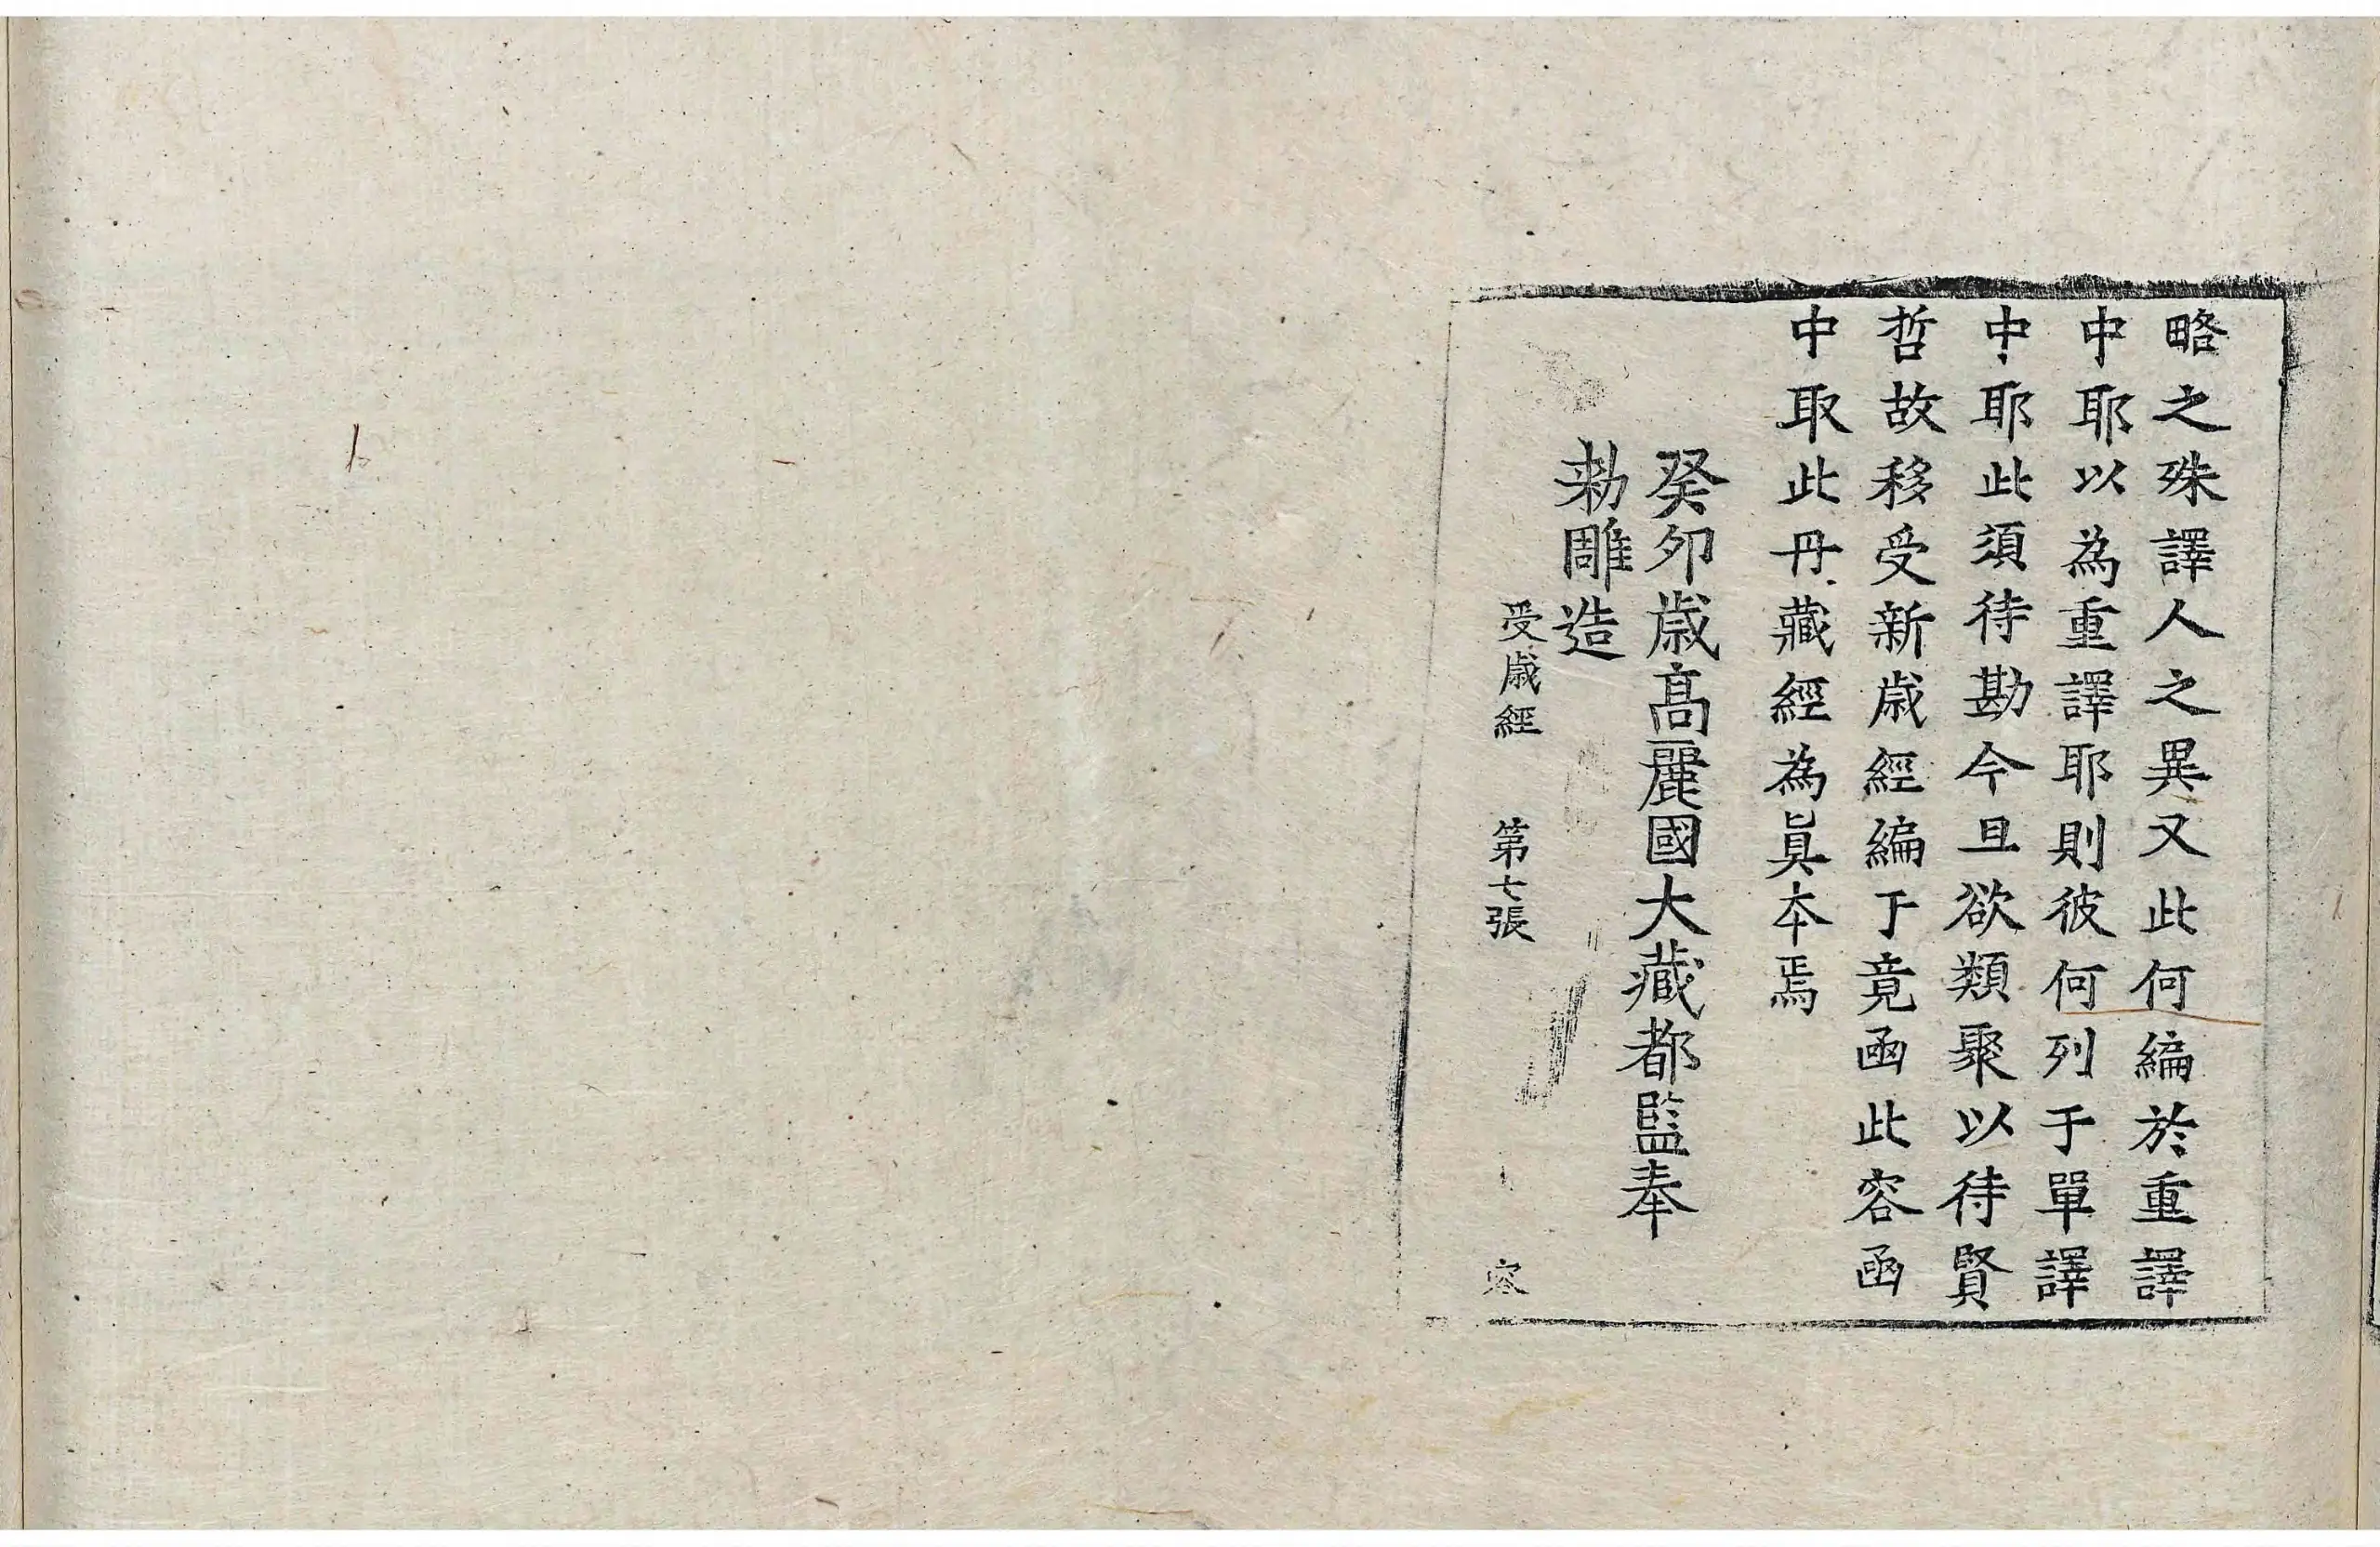 略之殊譯人之異又此何編於重譯
中耶以為重譯耶則彼何列于單譯
中耶此須待勘今且欲類聚以待賢
哲故移受新歲經編于竟函此容函
中取此丹藏經為眞本焉
癸卯歲高麗國大藏都監奉
勅雕造
受歲經 第七張 容